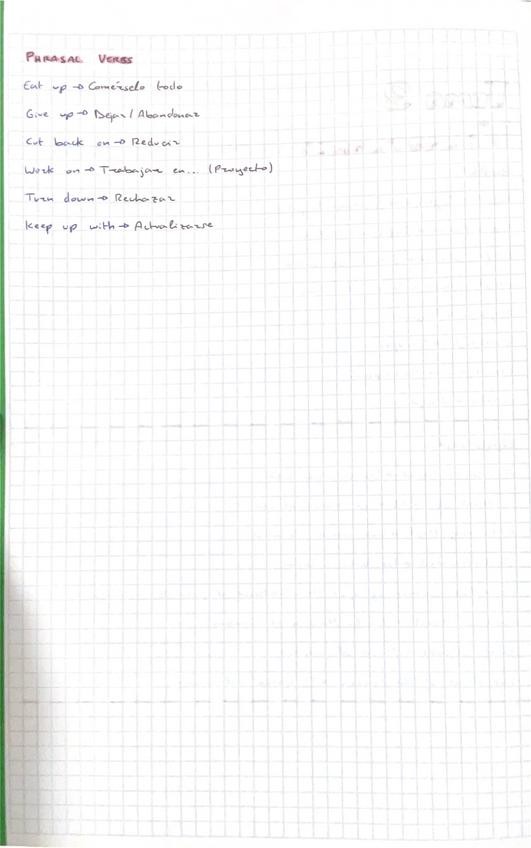 PHRASAL VERBS
Eat up → Comérselo todo
Give up → Dejar / Abandonar
Cut back on → Reducir
Work on → Trabajar en... (Proyecto)
Turn down → Rechazar
Keep up with → Actualizarse